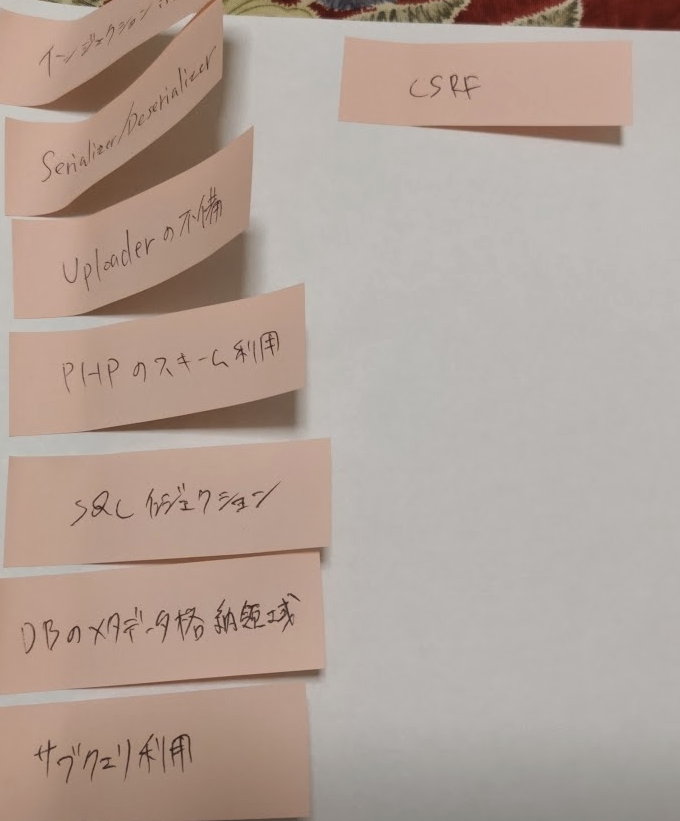 インジェクション
CSRF
Serializer/Deserializer
Uploaderの不備
PHPのスキーム利用
SQLインジェクション
DBのメタデータ格納領域
サブクエリ利用